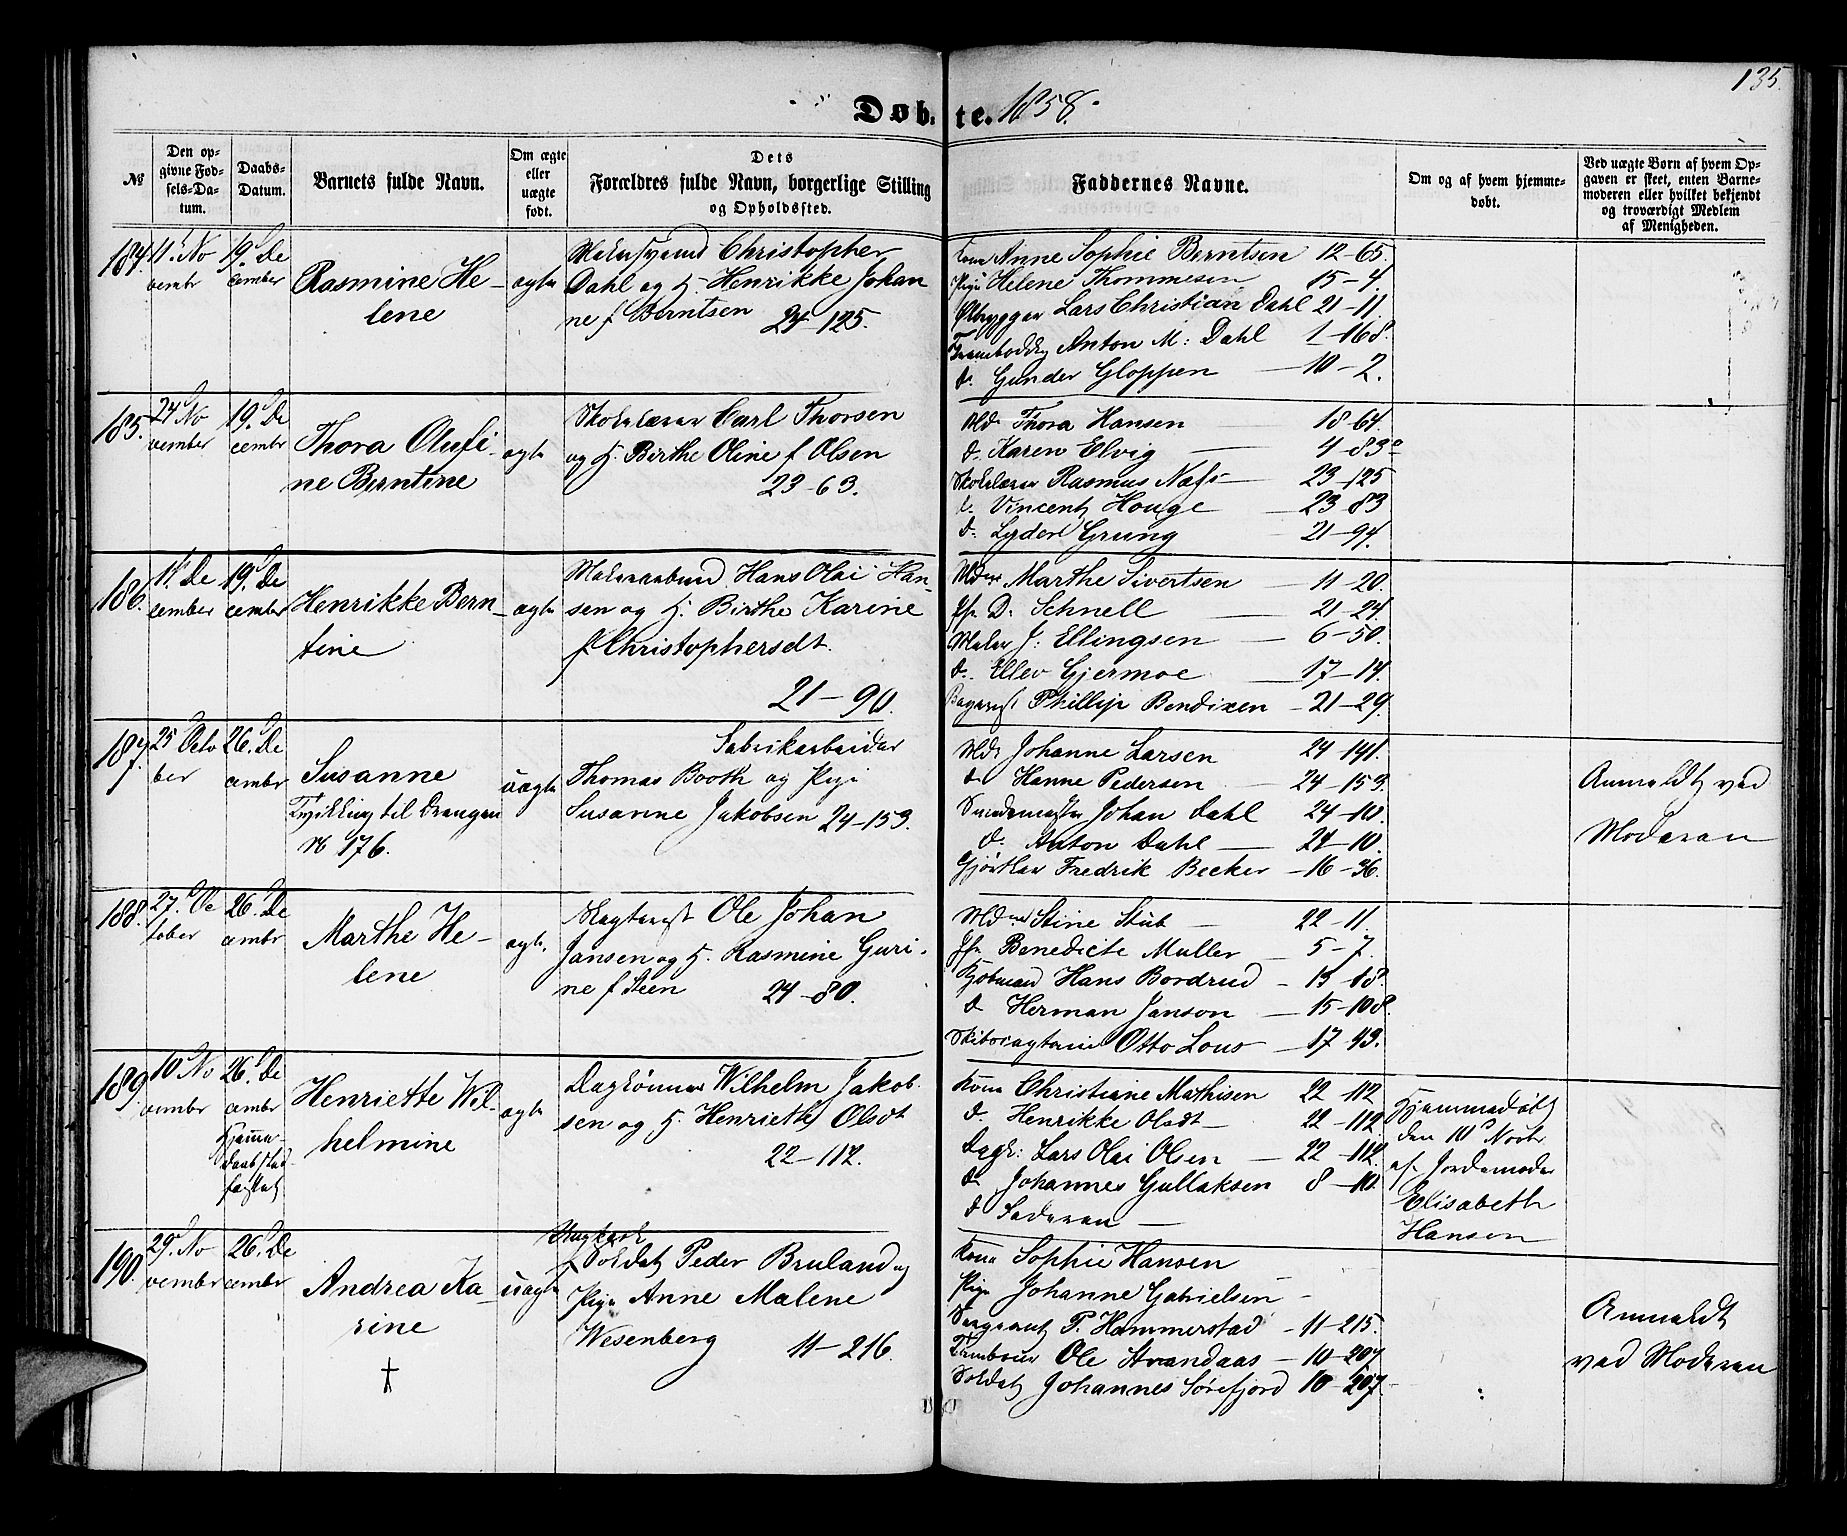 135.
Døbte. 1858.
№
Den opgivne Fødsels-Datum.
Daabs-Datum.
Barnets fulde Navn.
Om ægte eller uægte født.
Dets Forældres fulde Navn, borgerlige Stilling og Opholdssted.
Faddernes Navne.
Om og af hvem hjemmedøbt.
Ved uægte Børn af hvem Opgaven er skeet, enten Barnemoderen eller hvilket bekjendt og troværdigt Medlem af Menigheden.
184.
11. No
vembr
19. De
cember
Rasmine He-
lene
ægte
Christopher
Dahl og H. Henrikke Johan
ne f Berntsen 24-125.
Kone Anne Sophie Berntsen 12-65.
Pige Helene Thommesen 15-4.
Ølbrygger Lars Christian Dahl 21-11.
Anton M: Dahl 1-168.
d. Gunder Gloppen 10-2.
185.
24 No
vember
19. De
cembr
Thora Olufi-
ne Berntine
ægte
Skolelærer Carl Thorsen
og H. Birthe Oline f Olsen
23-63.
Md. Thora Hansen 18-64.
d. Karen Elvig 4-83a
Skolelærer Rasmus Næss 23-125
d. Vincentz Houge 23-83
d. Lyder Grung 21-94.
186.
11. De
cember
19. De
cember
Henrikke Bern-
tine
ægte
Hans Olai Han-
sen og H. Birthe Karine
f Christophersdt.
21-90.
Md. Marthe Sivertsen 11-20.
Jfr. D. Schnell 21-24.
Maler J. Ellingsen 6-50.
d. Ellev Gjermoe 17-14.
Phillip Bendixen 21-29.
187.
25 Octo
ber
26. De
cembr
Susanne
Tvilling til Drengen
№ 176.
uægte
Fabrikarbeider
Thomas Booth og Pige
Susanne Jakobsen 24-153.
Md. Johanne Larsen 24-141.
d. Hanne Pedersen 24-153.
Johan Dahl 24-10.
d. Anton Dahl 24-10.
Gjørtler Fredrik Becker 16-36.
Anmeldt ved
Moderen
188.
27. Oc
tober
26. De
cembr
Marthe He-
lene
ægte.
Ole Johan
Jansen og H. Rasmine Guri-
ne f Steen 24-80.
Md. Stine Stub 22-11.
Jfr. Benedicte Muller 5-7.
Kjøbmand Hans Bordrud 13-18.
d. Herman Janson 15-108.
Otto Lous 17-43.
189.
10 No
vembr
26. De
cembr
Hjemme-
daab stad-
fæstet
Henriette Wil-
helmine
ægte
Daglønner Wilhelm Jakob-
sen og H. Henriette Olsdt
22-112.
Kone Christiane Mathisen 22-112
d. Henrikke Olsdt 22-112
Dagl: Lars Olai Olsen 22-112.
d. Johannes Gullaksen 8-10.
d Faderen
Hjemmedøbt
den 10. Novbr
af Jordemoder
Elisabeth
Hansen
190.
29. No
vembr
26. De
cembr
Andrea Ka-
rine
†
uægte
Ungkarl
f Soldat Peder Bruland og
Pige Anne Malene
Wesenberg 11-216.
Kone Sophie Hansen
Pige Johanne Gabrielsen
Sergeant P. Hammerstad 11-215.
Tambour Ole Strandaas 10-207
Soldat Johannes Sørefjord 10-207
Anmeldt
ved Moderen